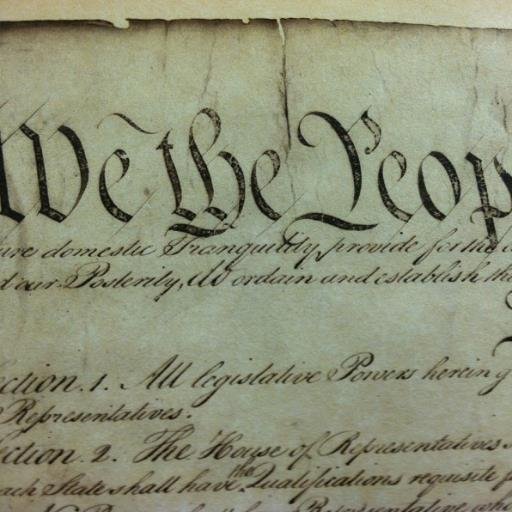 We the Peop
ure domestic Tranquility, provide for the
d our Posterity, do ordain and establish th
ection. 1. All legislative Powers herein g
Representatives.
ection. 2. The House of Representatives
the
ach State shall have Qualifications requisite
No Person shall be a Representative who